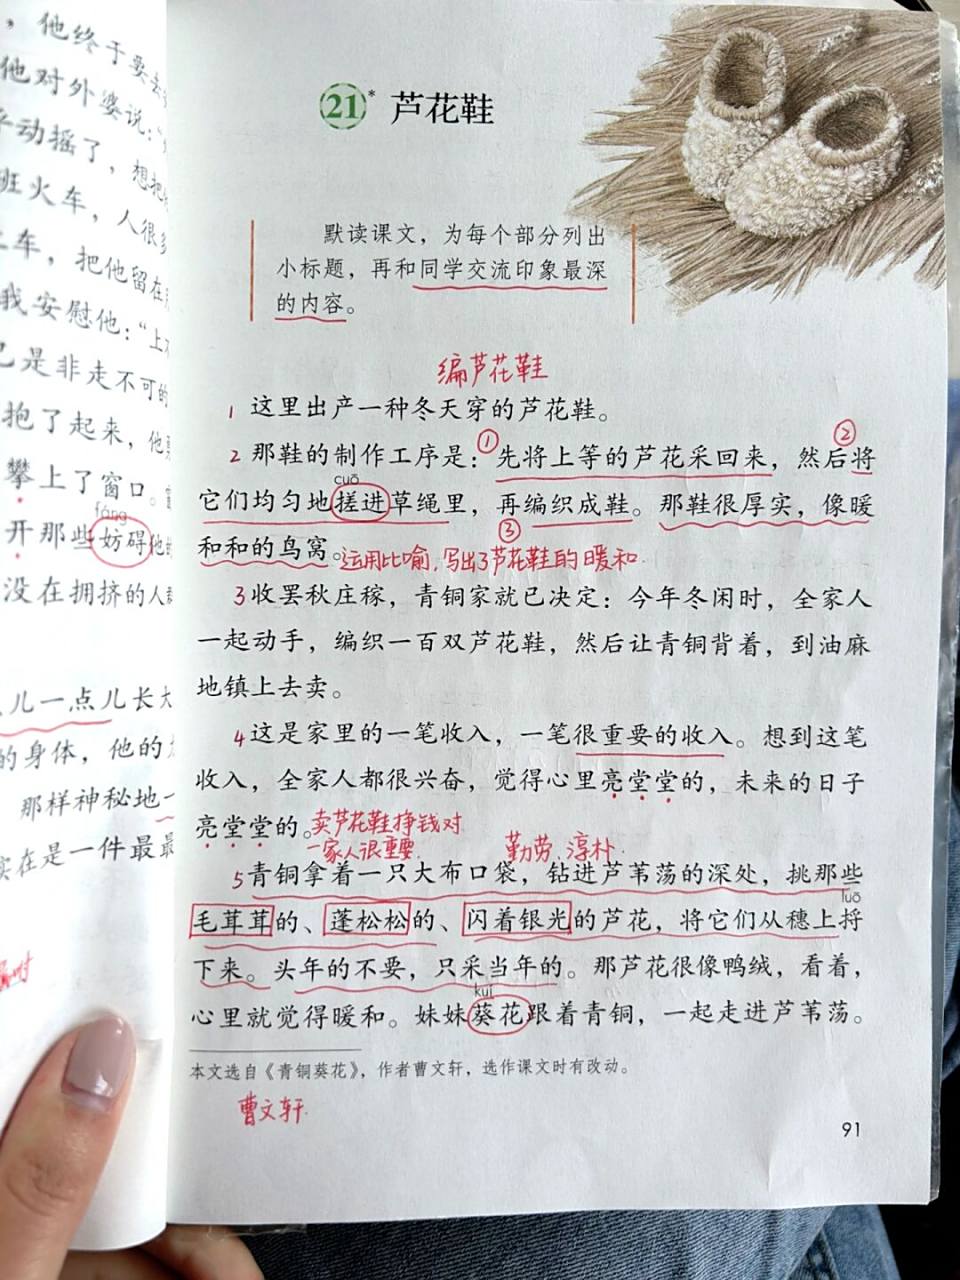 ，他终于要去
他对外婆说：“
动摇了，想把
班火车，人很多
车，把他留在
我安慰他：“上
已是非走不可的
抱了起来，他
攀上了窗口。
fáng
开那些妨碍他
没在拥挤的人群
儿一点儿长大
的身体，他的
那样神秘地一
实在是一件最最
21* 芦花鞋
默读课文，为每个部分列出
小标题，再和同学交流印象最深
的内容。
编芦花鞋
1 这里出产一种冬天穿的芦花鞋。
2 那鞋的制作工序是：①先将上等的芦花采回来，然后②将
cuō
它们均匀地搓进草绳里，再编织成鞋。那鞋很厚实，像暖
③
和和的鸟窝。运用比喻，写出了芦花鞋的暖和.
3 收罢秋庄稼，青铜家就已决定：今年冬闲时，全家人
一起动手，编织一百双芦花鞋，然后让青铜背着，到油麻
地镇上去卖。
4 这是家里的一笔收入，一笔很重要的收入。想到这笔
收入，全家人都很兴奋，觉得心里亮堂堂的，未来的日子
亮堂堂的。卖芦花鞋挣钱对
一家人很重要.
勤劳、淳朴.
5 青铜拿着一只大布口袋，钻进芦苇荡的深处，挑那些
luō
毛茸茸的、蓬松松的、闪着银光的芦花，将它们从穗上捋
下来。头年的不要，只采当年的。那芦花很像鸭绒，看着，
kuí
心里就觉得暖和。妹妹葵花跟着青铜，一起走进芦苇荡。
本文选自《青铜葵花》，作者曹文轩，选作课文时有改动。
曹文轩.
91